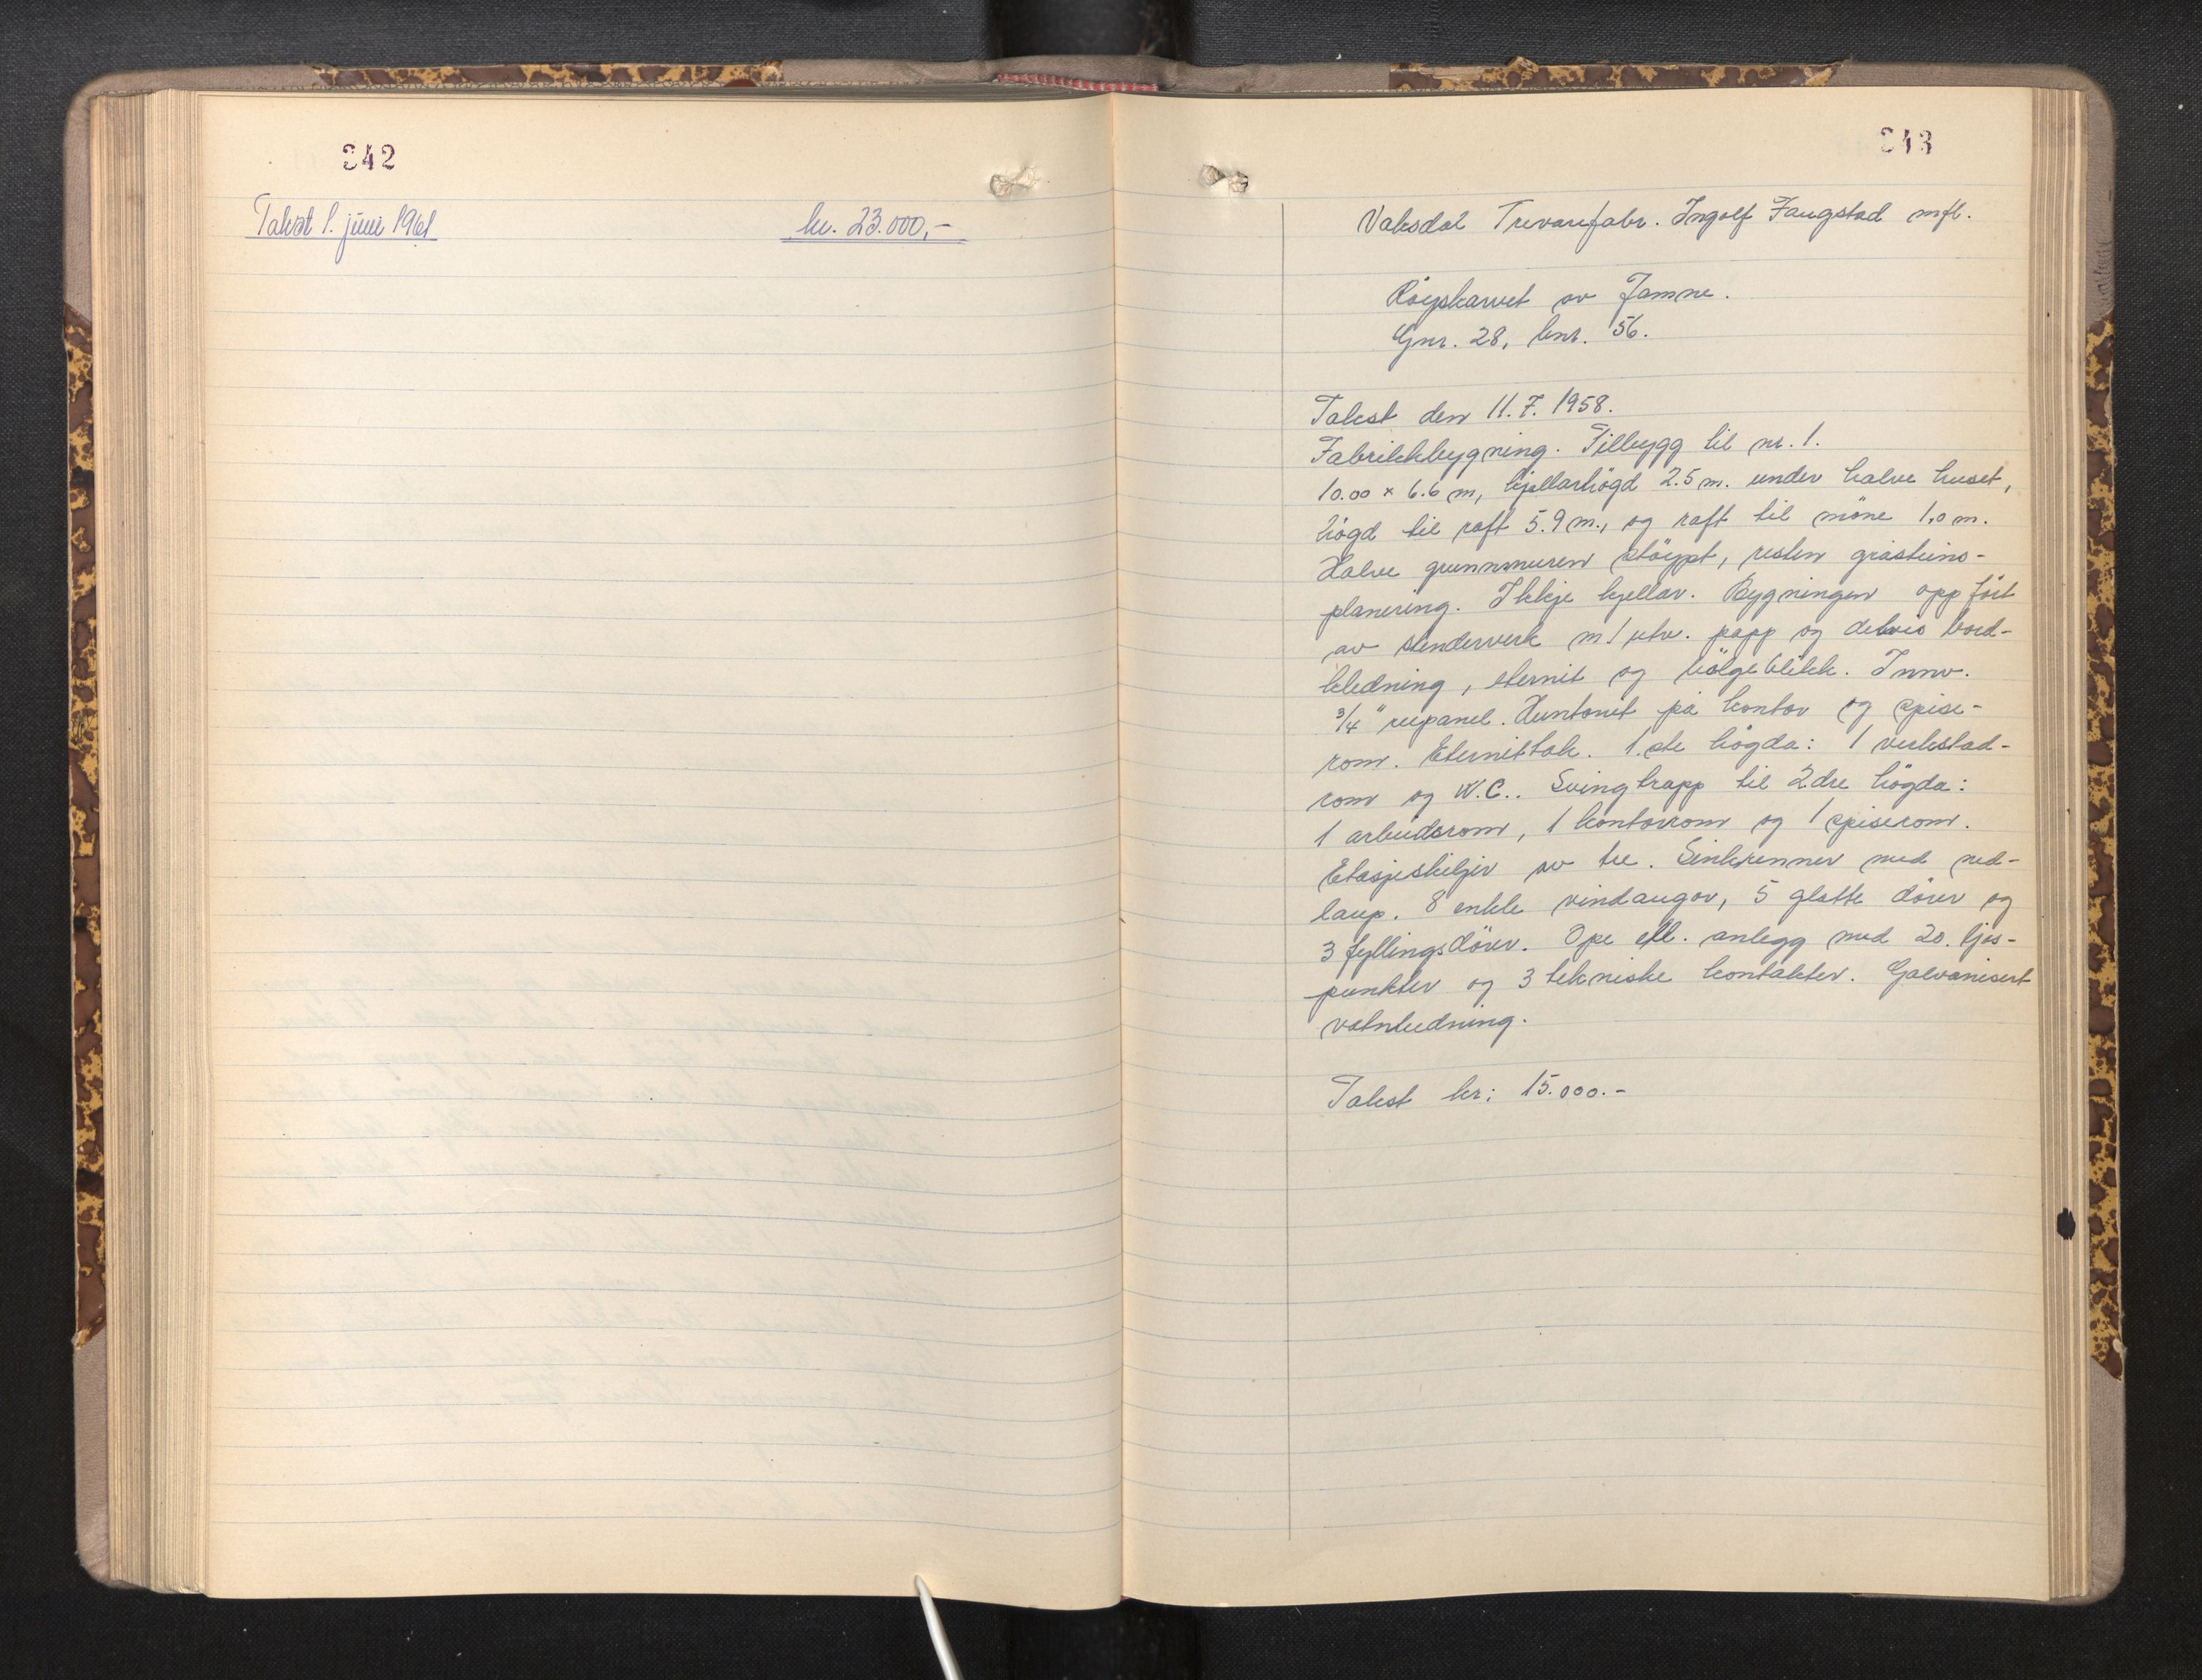 242
Takst 1. juni 1961 kr. 23.000,-
243
Vaksdal Trevarefabr. Ingolf Faugstad mfl.
Röyskarvet av Jamne.
Gnr. 28, bnr. 56.
Takst den 11.7.1958.
Fabrikkbygning. Tilbygg til nr. 1.
10.00 x 6.6 m, kjellarhögd 2.5 m. under halve huset,
högd til raft 5.9 m., og raft til möne 1,0 m.
Halve grunnmuren stöypt, resten gråsteins-
planering. Ikkje kjellar. Bygningen oppfört
av stenderverk m/utv. papp og delvis bord-
kledning, eternit og bölgeblikk. Innv.
3/4" rupanel. Huntonit på kontor og spise-
rom. Eternittak. 1.ste högda: 1 verkstad-
rom og W.C.. Svingtrapp til 2dre högda:
1 arbeidsrom, 1 kontorrom og 1 spiserom.
Etasjeskiljer av tre. Sinkrenner med ned-
laup. 8 enkle vindaugor, 5 glatte dörer og
3 fyllingsdörer. Ope ell. anlegg med 20. ljos-
punkter og 3 tekniske kontakter. Galvanisert
vatnledning.
Takst kr: 15.000.-